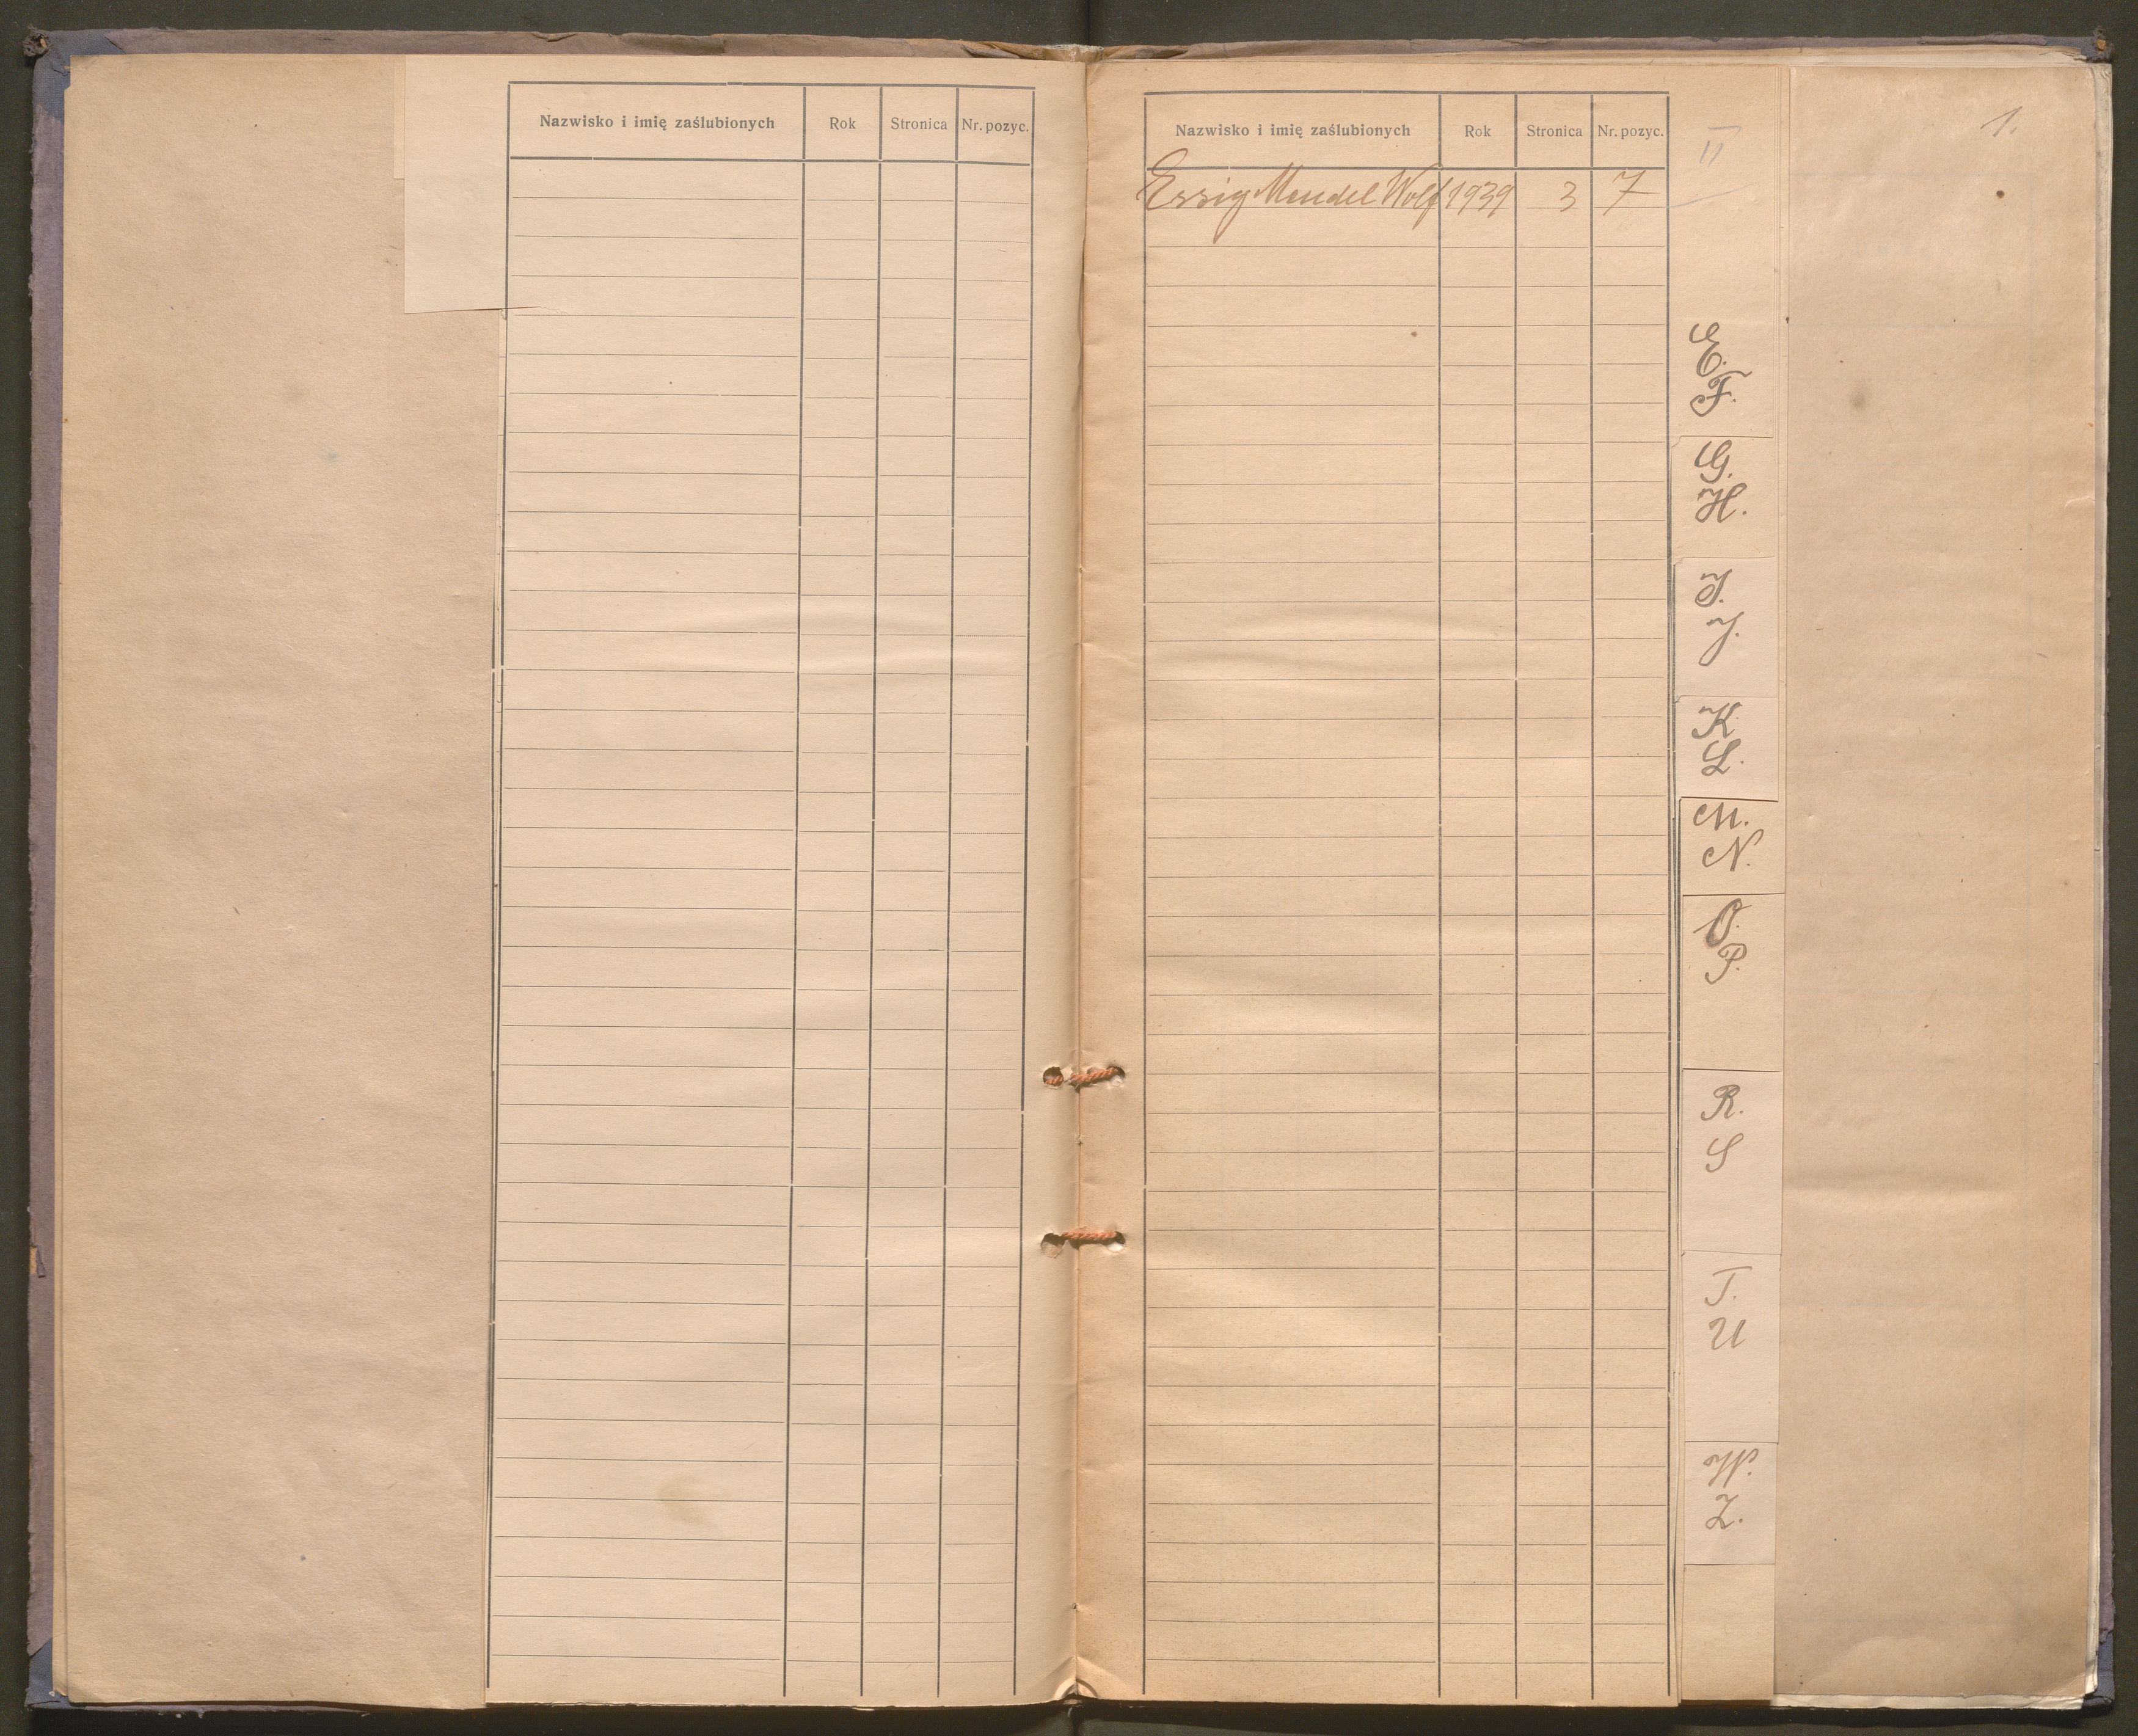 Nazwisko i imię zaślubionych Rok Stronica Nr. pozyc.
Nazwisko i imię zaślubionych Rok Stronica Nr. pozyc.
Essig Mendel Wolf 1939 3 7
II
1.
E.
F.
G.
H.
I.
J.
K.
L.
M.
N.
O.
P.
R.
S
T.
U
W.
Z.